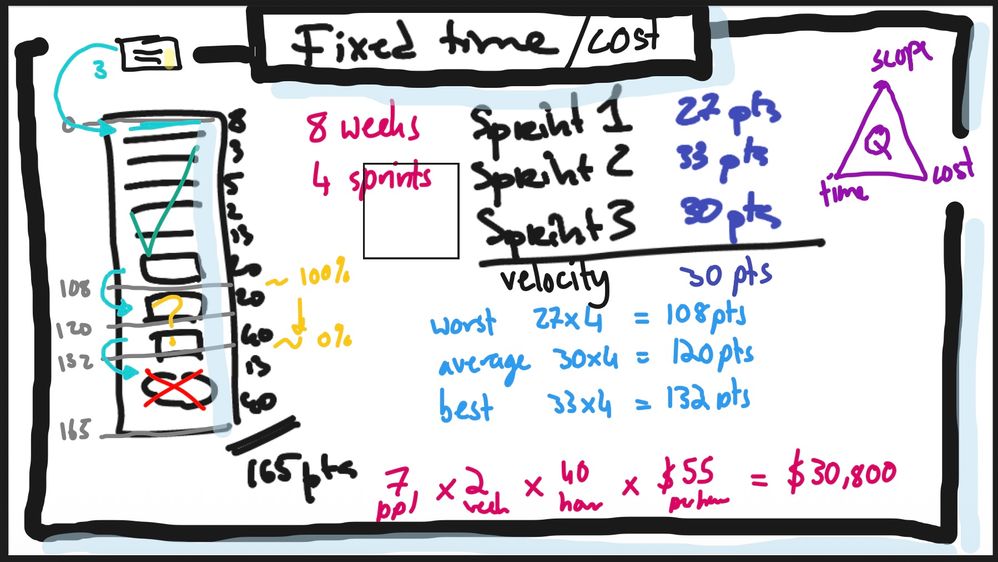 Fixed time/cost
3
0
8
3
5
2
13
20
20
40
13
40
108
120
132
165
165 pts
~ 100%
~ 0%
?
?
8 weeks
4 sprints
Sprint 1 27 pts
Sprint 2 33 pts
Sprint 3 30 pts
velocity 30 pts
worst 27x4 = 108 pts
average 30x4 = 120 pts
best 33x4 = 132 pts
scope
Q
time
cost
7 x 2 x 40 x $55 = $30,800
ppl week hour per hour